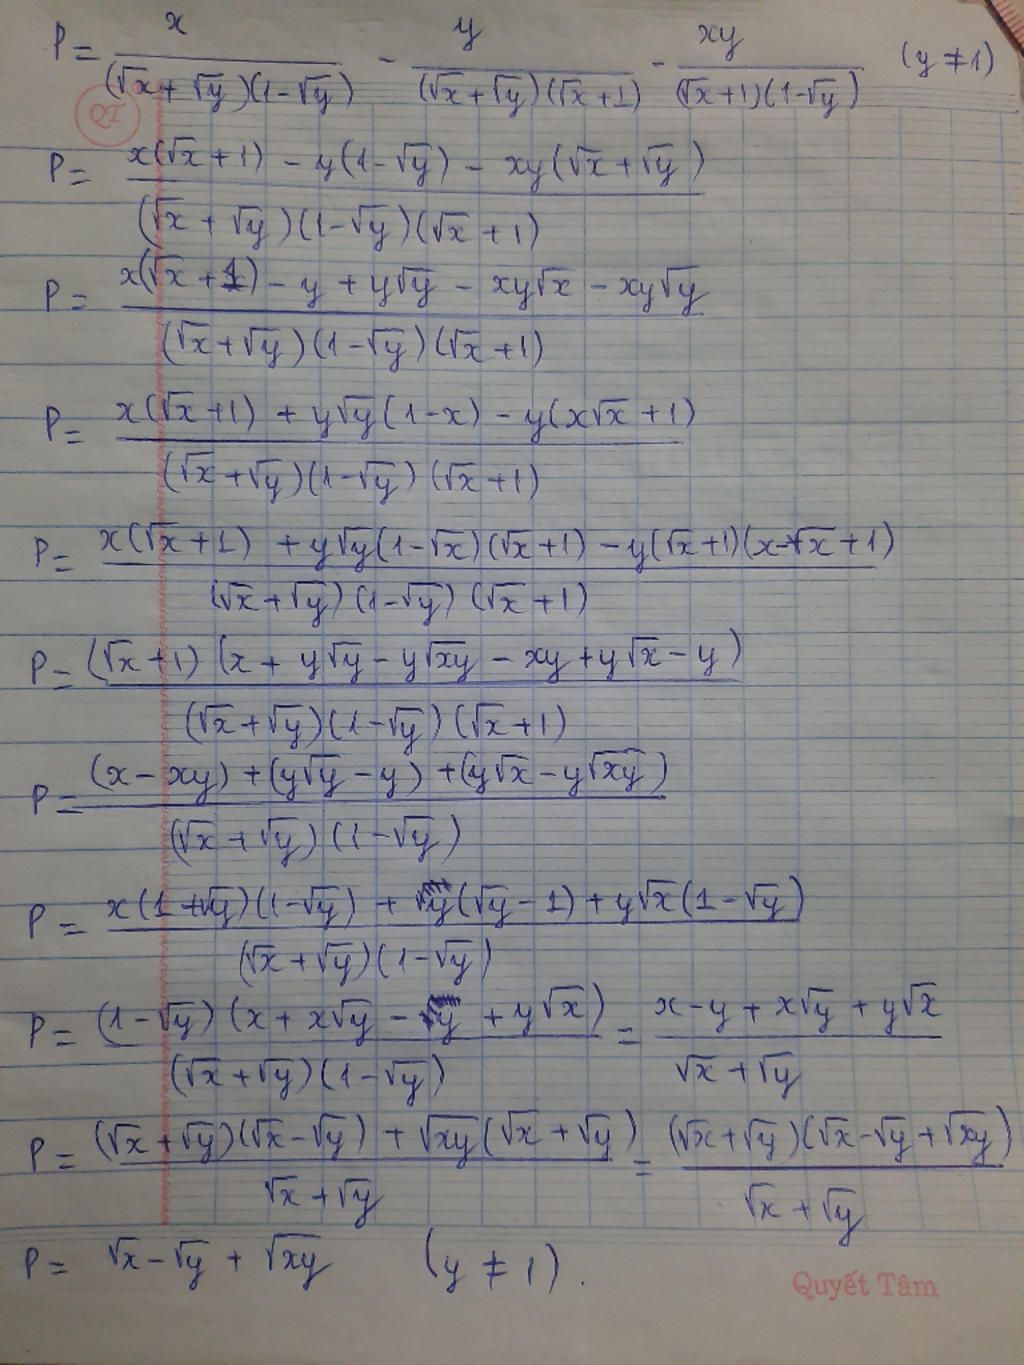 P = x/((√x + √y)(1-√y)) - y/((√x + √y)(√x+1)) - xy/((√x+1)(1-√y)) (y ≠ 1)
P = (x(√x + 1) - y(1-√y) - xy(√x + √y))/((√x + √y)(1-√y)(√x + 1))
P = (x(√x + 1) - y + y√y - xy√x - xy√y)/((√x+√y)(1-√y)(√x+1))
P = (x(√x+1) + y√y(1-x) - y(x√x + 1))/((√x+√y)(1-√y)(√x+1))
P = (x(√x+1) + y√y(1-√x)(√x+1) - y(√x+1)(x-√x+1))/((√x+√y)(1-√y)(√x+1))
P = ((√x+1)(x + y√y - y√xy - xy + y√x - y))/((√x+√y)(1-√y)(√x+1))
P = ((x - xy) + (y√y - y) + (y√x - y√xy))/((√x+√y)(1-√y))
P = (x(1+√y)(1-√y) + y(√y-1) + y√x(1-√y))/((√x+√y)(1-√y))
P = ((1-√y)(x + x√y - y + y√x))/((√x+√y)(1-√y)) = (x-y + x√y + y√x)/(√x+√y)
P = ((√x+√y)(√x-√y) + √xy(√x+√y))/(√x+√y) = ((√x+√y)(√x-√y+√xy))/(√x+√y)
P = √x-√y + √xy (y ≠ 1).
Quyết Tâm